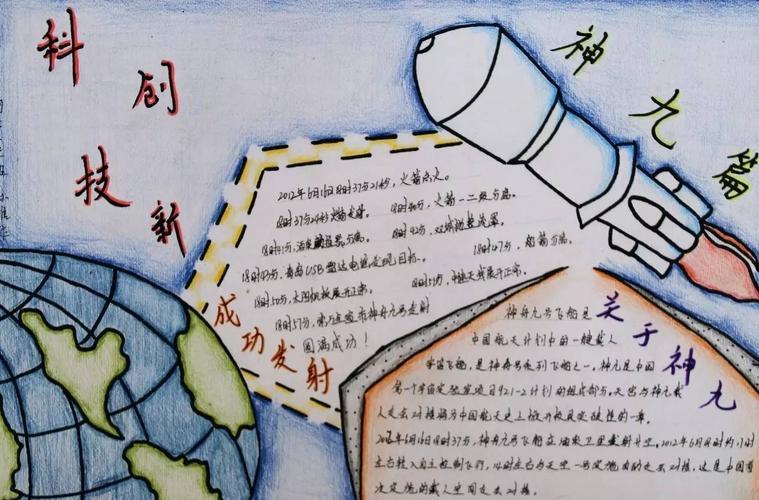 科
创
技
新
神
九
篇
2012年6月16日18时37分21秒，火箭点火。
18时37分24秒火箭起飞。
18时40分，火箭一二级分离。
18时41分，
分离。
18时42分，
18时43分，青岛USB雷达电
发现目标。
18时47分，船箭分离。
18时50分，太阳帆板展开正常。
18时51分，中继天线展开正常。
18时57分，
宣布神舟九号发射
圆满成功！
成功发射
关于神九
神舟九号飞船是
中国航天计划中的一艘载人
宇宙飞船，是神舟号系列飞船之一。神九是中国
第一个宇宙实验室项目921-2计划的组成部分，天宫与神九载
人交会对接将为中国航天史上掀开极具突破性的一章。
2012年6月16日18时37分，神舟九号飞船在酒泉卫星发射升空。2012年6月18日约11时
左右转入自主控制飞行，14时左右与天宫一号实施自动交会对接，这是中国首
次实施的载人空间交会对接。